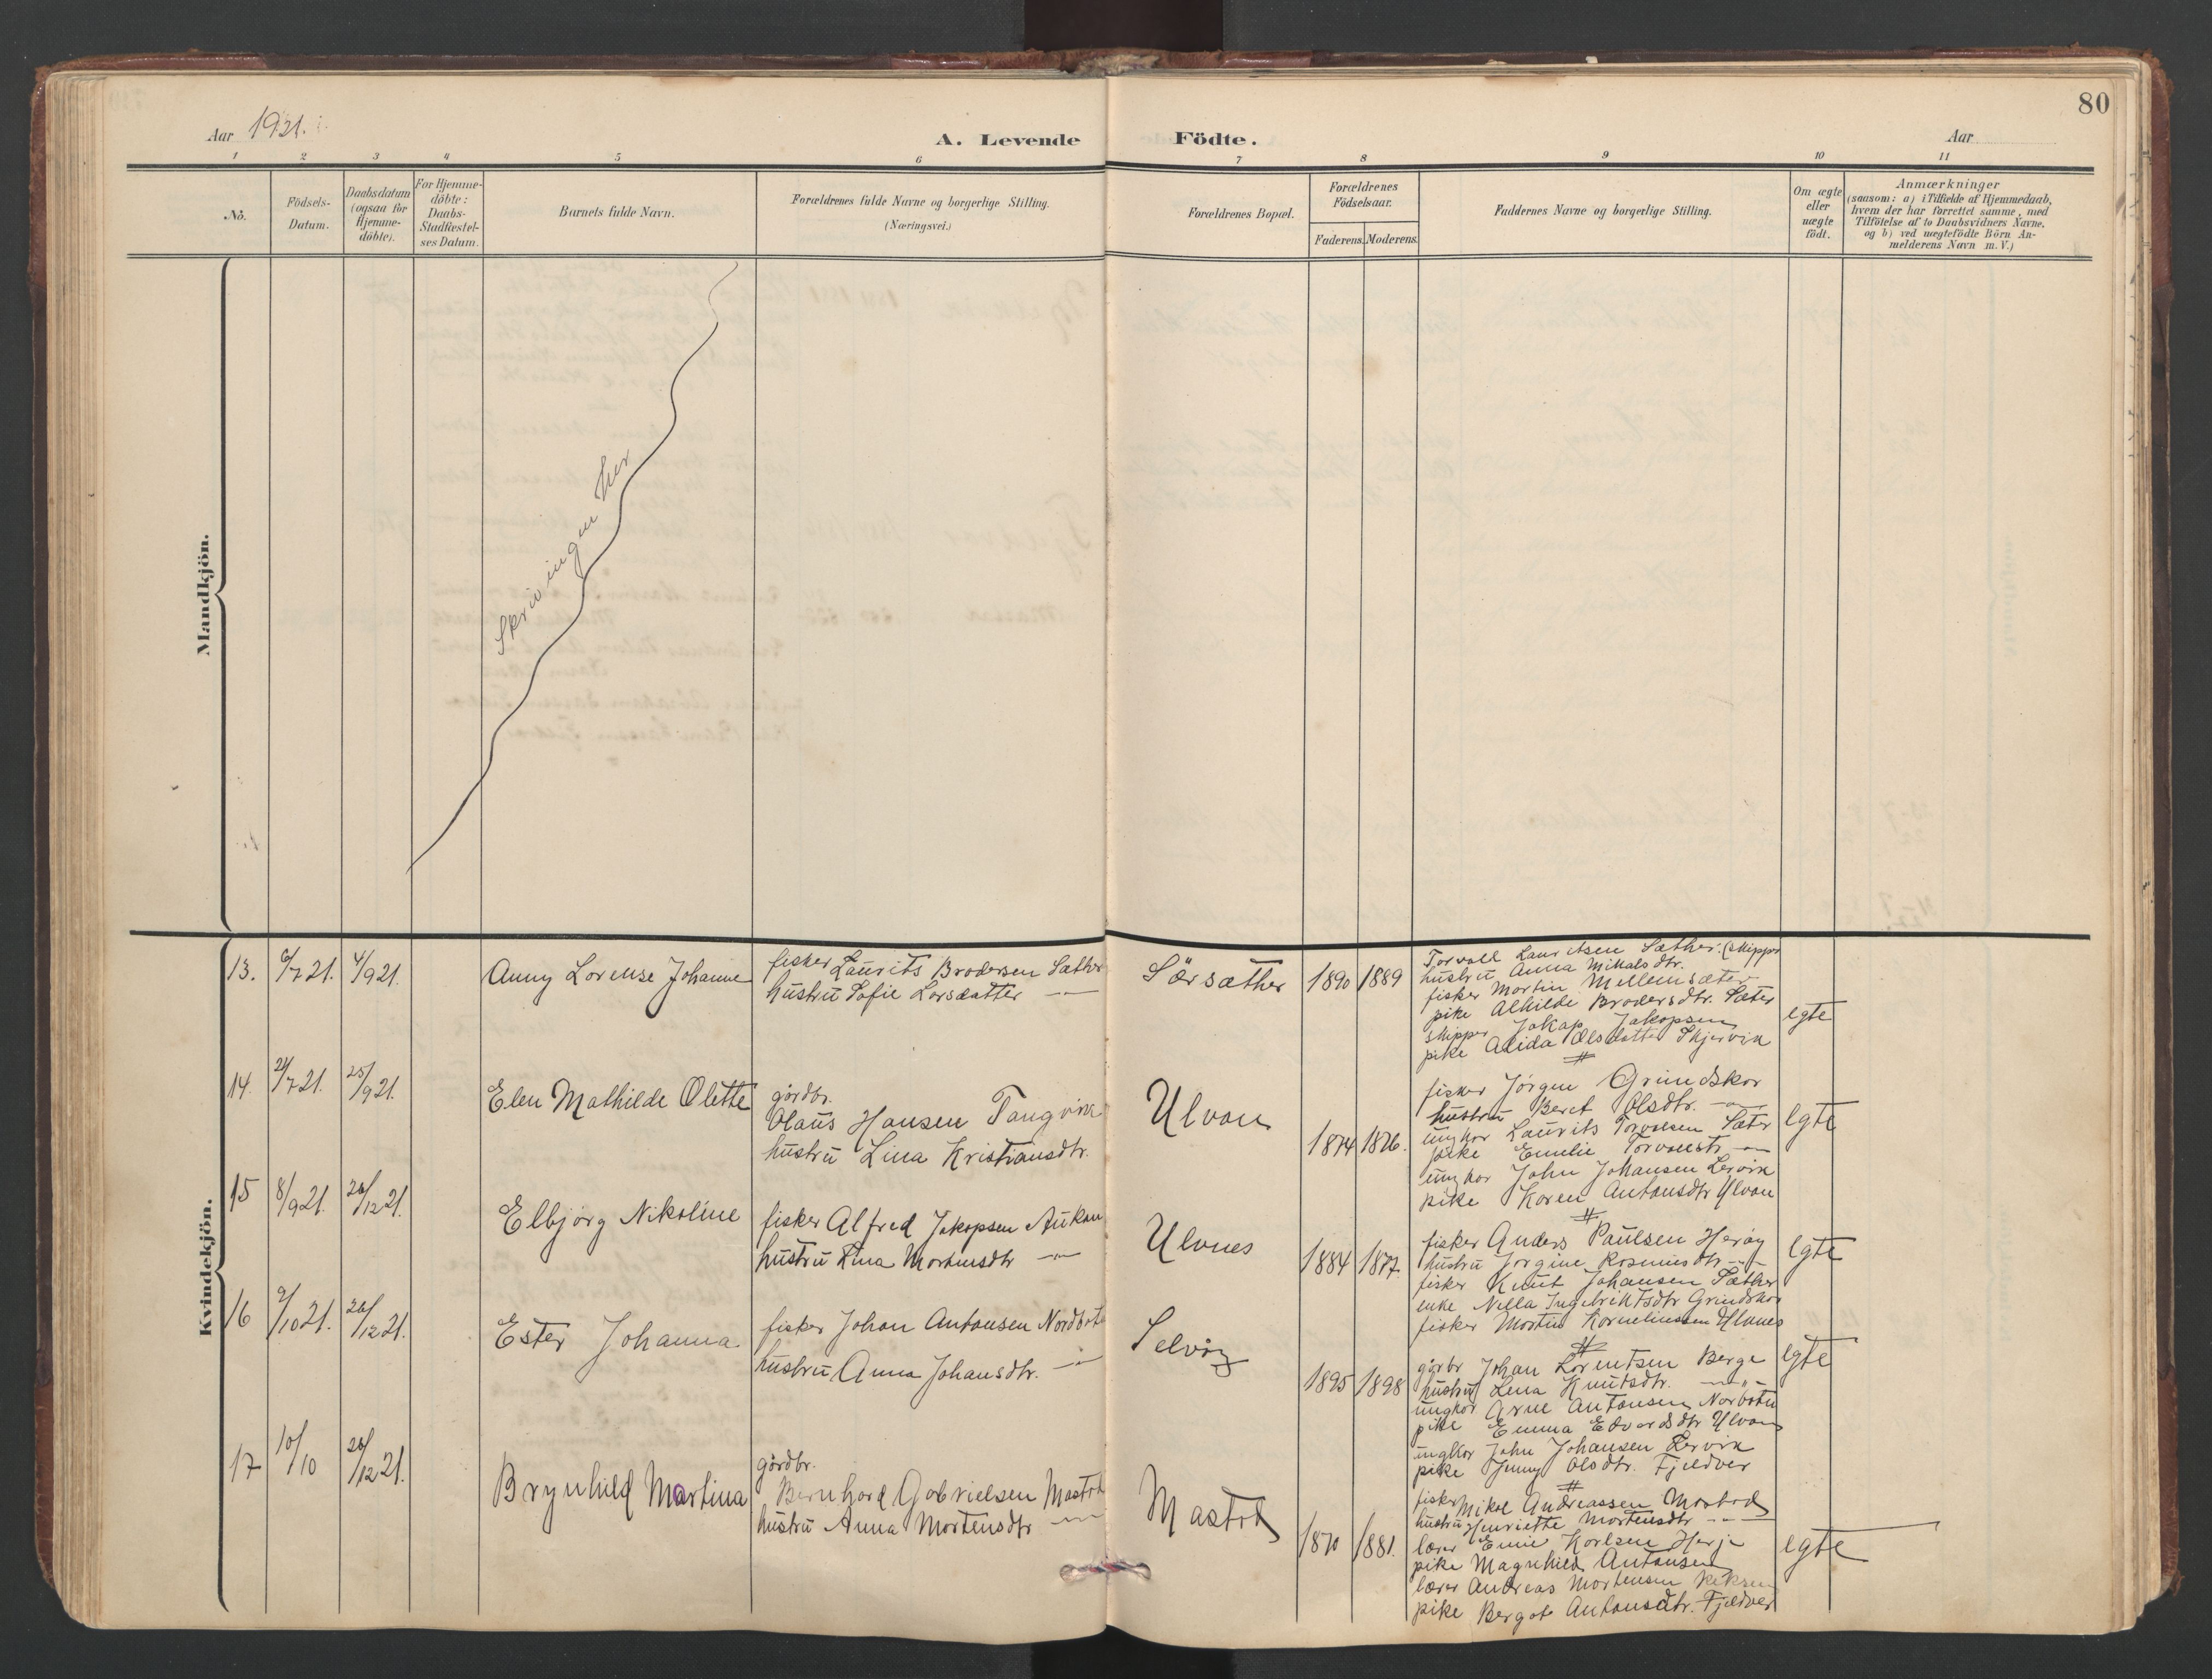 80
Aar 1921.
A. Levende Födte.
Aar
1 2 3 4 5 6 7 8 9 10 11
No.
Födsels-
Datum.
Daabsdatum
(ogsaa for
Hjemme-
döbte).
For Hjemme-
döbte:
Daabs-
Stadfestel-
ses Datum.
Barnets fulde Navn.
Forældrenes fulde Navne og borgerlige Stilling.
(Næringsvei.)
Forældrenes Bopæl.
Forældrenes
Födselsaar.
Faderens. Moderens.
Faddernes Navne og borgerlige Stilling.
Om ægte
eller
uægte
födt.
Anmærkninger
(saasom: a) i Tilfælde af Hjemmedaab,
hvem der har forrettet samme, med
Tilföielse af to Daabsvidners Navne.
og b) ved uægtefödte Börn An-
melderens Navn m. V.)
Mandkjön.
Skrivingen her
Kvindekjön.
13. 6/7 21. 4/9 21. Anny Lorense Johanne
fisker Laurits Brodersen Sæther
hustru Sofie Larsdatter -"-
Sørsæther 1890 1889
Torvall Lauritsen Sæther. (skipper
hustru Anna Mikalsdtr.
fisker Martin Mellemsæter
pike Alhilde Brodersdtr. Sæter
skipper Jakop Jakopsen
pike Alida Olsdatter Skjervik
egte
14. 21/7 21. 25/9 21. Elen Mathilde Olette
gårdbr.
Olaus Hansen Tangvik
hustru Lina Kristiansdtr.
Ulvan 1874 1876.
fisker Jørgen Grindskar
hustru Beret Olsdtr. -"-
ungkar Laurits Torvalsen Sæter
pike Emelie Torvalsdtr -"-
ungkar John Johansen Lervik
pike Karen Antonsdtr Ulvan
egte
15 8/9 21. 26/12 21. Elbjørg Nikoline
fisker Alfred Jakopsen Aukan
hustru Lina Mortensdtr -"-
Ulvnes 1884 1877.
fisker Anders Paulsen Herøy
hustru Jorgine Rasmusdtr -"-
fisker Knut Johansen Sæther
enke Nella Ingebriktsdtr Grindskar
fisker Martin Korneliussen Ulvnes
egte
16 9/10 21. 26/12 21. Ester Johanna
fisker Johan Antonsen Nordbotn
hustru Anna Johansdtr. -"-
Selvåg 1895 1898
gårbr Johan Lorentsen Berge
hustru Lena Knutsdtr. -"-
ungkar Arne Antonsen Norbotn
pike Emma Edvardsdtr Ulvan
ungkar John Johansen Lervik
pike Jenny Olsdtr. Fjeldver
egte
17 10/10 26/12 21. Brynhild Martina
gårdbr.
Bernhard Gabrielsen Mastad
hustru Anna Mortensdtr -"-
Mastad 1870 1881.
fisker Mikal Andreassen Mastad
hustru Henriette Mortensdtr -"-
lærer Karlsen Herje
pike Magnhild Antonsen
lærer Andreas Mortensen
pike Bergot Antonsdtr. Fjeldver
egte